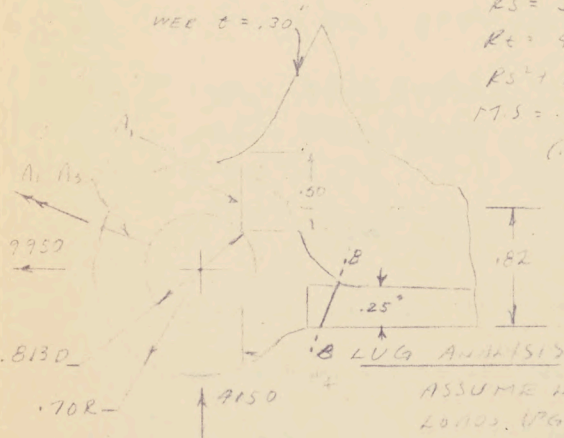 RS =
WEB t = .30
Rt =
RS² +
M.S = .
A₁
.50
9950
.82
B
.25"
.8130
B
LUG ANALYSIS
.70R
4150
ASSUME
LOADS.